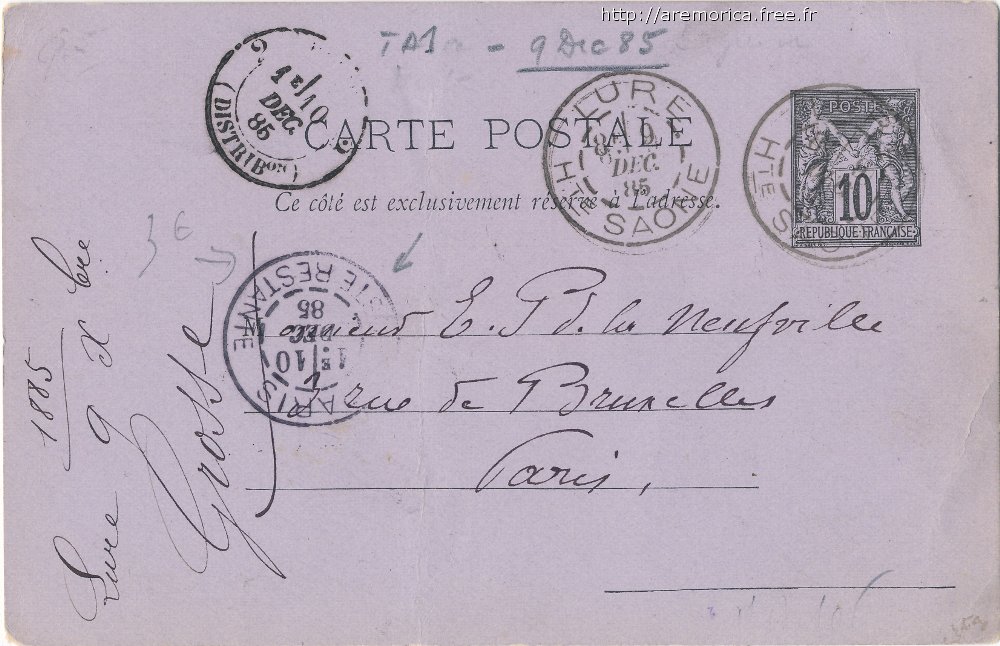 http://aremorica.free.fr
TA1 - 9 Dec 85
1E/10
DEC.
85
(DISTRIBON)
LURE
DEC.
85
HTE SAÔNE
HTE SAÔNE
POSTE
10
REPUBLIQUE FRANÇAISE
CARTE POSTALE
Ce côté est exclusivement réservé à l'adresse.
36
PARIS
POSTE RESTANTE
1E 10
DEC
85
Monsieur E. Pd. de la Neufville
rue de Bruxelles
Paris,
1885
Lure 9 Xbre
Grosse